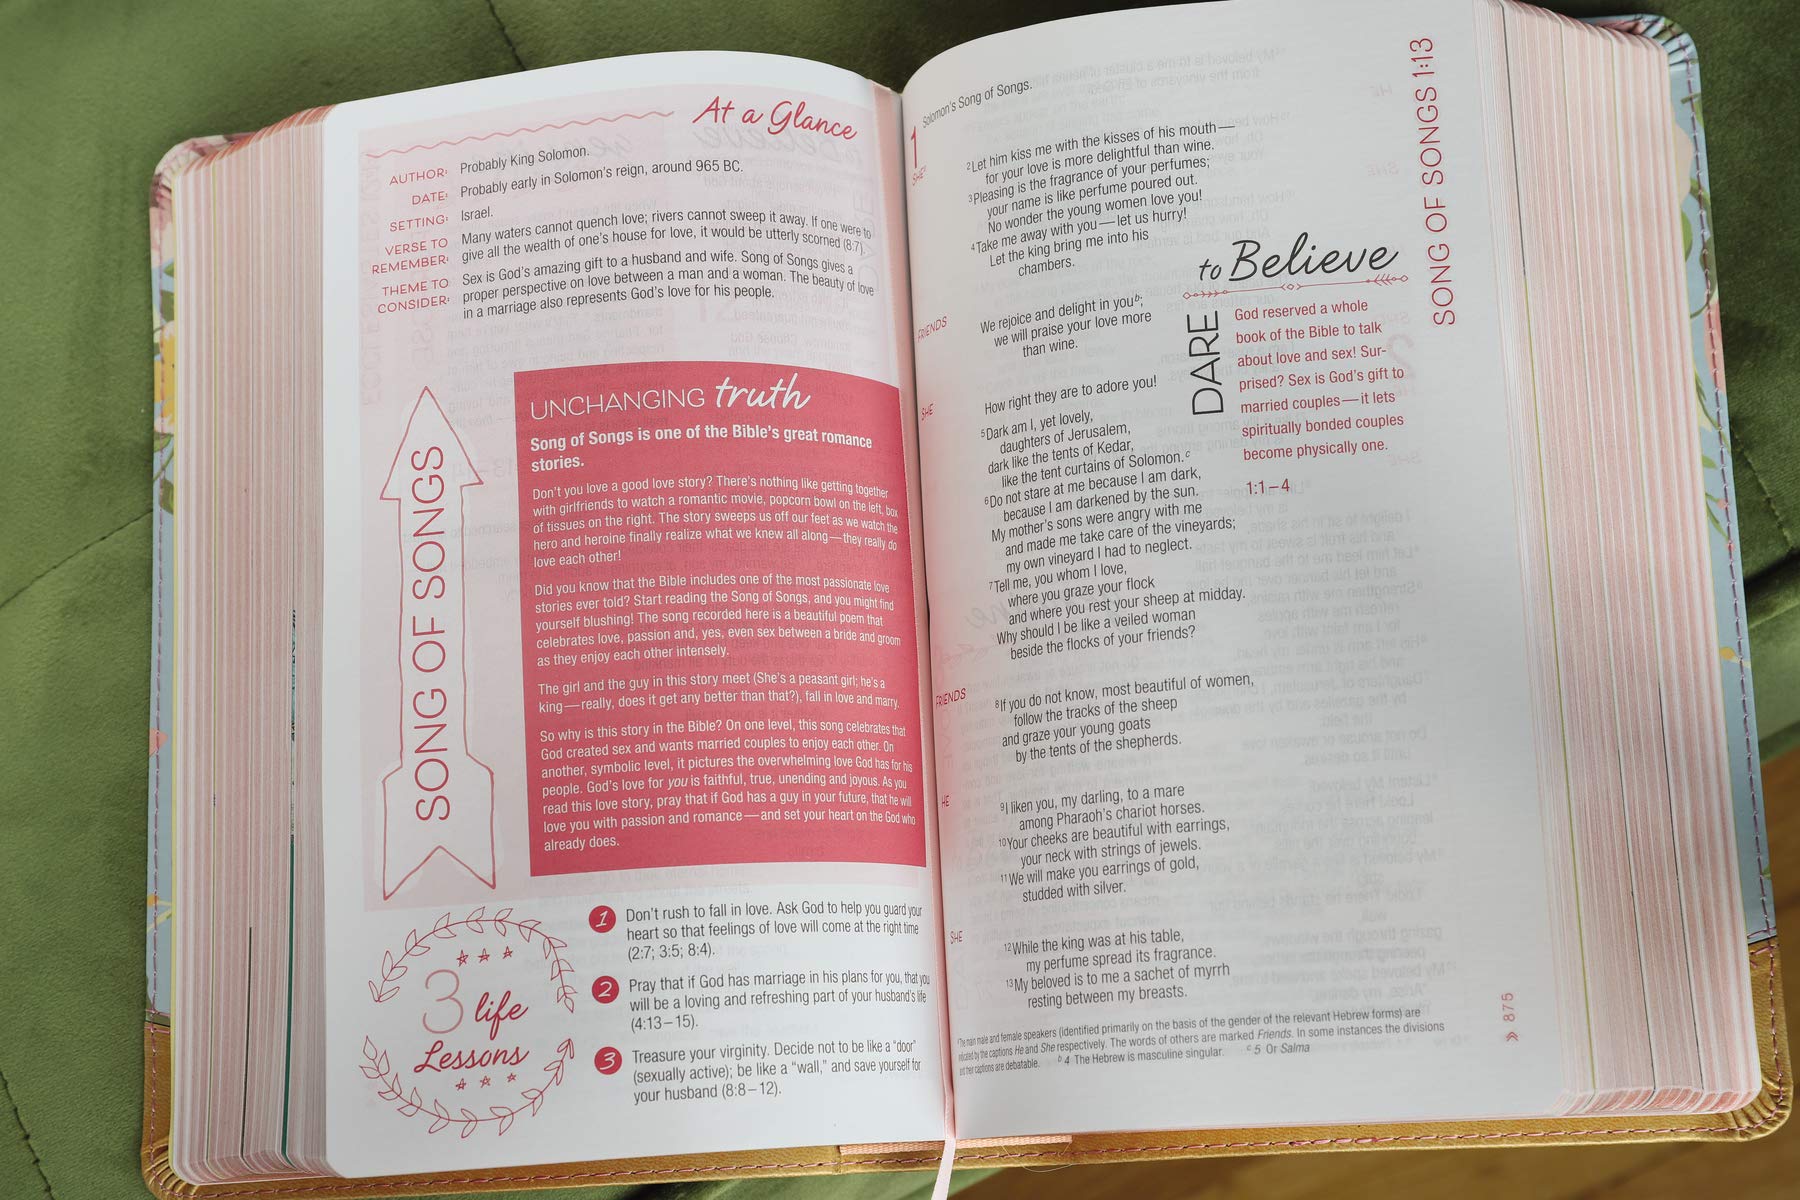 At a Glance
AUTHOR: Probably King Solomon.
DATE: Probably early in Solomon's reign, around 965 BC.
SETTING: Israel.
VERSE TO REMEMBER: Many waters cannot quench love; rivers cannot sweep it away. If one were to
give all the wealth of one's house for love, it would be utterly scorned (8:7).
THEME TO CONSIDER: Sex is God's amazing gift to a husband and wife. Song of Songs gives a
proper perspective on love between a man and a woman. The beauty of love
in a marriage also represents God's love for his people.
SONG OF SONGS
UNCHANGING truth
Song of Songs is one of the Bible's great romance
stories.
Don't you love a good love story? There's nothing like getting together
with girlfriends to watch a romantic movie, popcorn bowl on the left, box
of tissues on the right. The story sweeps us off our feet as we watch the
hero and heroine finally realize what we knew all along—they really do
love each other!
Did you know that the Bible includes one of the most passionate love
stories ever told? Start reading the Song of Songs, and you might find
yourself blushing! The song recorded here is a beautiful poem that
celebrates love, passion and, yes, even sex between a bride and groom
as they enjoy each other intensely.
The girl and the guy in this story meet (She's a peasant girl; he's a
king—really, does it get any better than that?), fall in love and marry.
So why is this story in the Bible? On one level, this song celebrates that
God created sex and wants married couples to enjoy each other. On
another, symbolic level, it pictures the overwhelming love God has for his
people. God's love for you is faithful, true, unending and joyous. As you
read this love story, pray that if God has a guy in your future, that he will
love you with passion and romance—and set your heart on the God who
already does.
3 life
Lessons
1 Don't rush to fall in love. Ask God to help you guard your
heart so that feelings of love will come at the right time
(2:7; 3:5; 8:4).
2 Pray that if God has marriage in his plans for you, that you
will be a loving and refreshing part of your husband's life
(4:13–15).
3 Treasure your virginity. Decide not to be like a "door"
(sexually active); be like a "wall," and save yourself for
your husband (8:8–12).
SONG OF SONGS 1:13
1 Solomon's Song of Songs.
SHE a
2 Let him kiss me with the kisses of his mouth—
for your love is more delightful than wine.
3 Pleasing is the fragrance of your perfumes;
your name is like perfume poured out.
No wonder the young women love you!
4 Take me away with you—let us hurry!
Let the king bring me into his
chambers.
FRIENDS
We rejoice and delight in you b;
we will praise your love more
than wine.
SHE
How right they are to adore you!
5 Dark am I, yet lovely,
daughters of Jerusalem,
dark like the tents of Kedar,
like the tent curtains of Solomon. c
6 Do not stare at me because I am dark,
because I am darkened by the sun.
My mother's sons were angry with me
and made me take care of the vineyards;
my own vineyard I had to neglect.
7 Tell me, you whom I love,
where you graze your flock
and where you rest your sheep at midday.
Why should I be like a veiled woman
beside the flocks of your friends?
FRIENDS
8 If you do not know, most beautiful of women,
follow the tracks of the sheep
and graze your young goats
by the tents of the shepherds.
HE
9 I liken you, my darling, to a mare
among Pharaoh's chariot horses.
10 Your cheeks are beautiful with earrings,
your neck with strings of jewels.
11 We will make you earrings of gold,
studded with silver.
SHE
12 While the king was at his table,
my perfume spread its fragrance.
13 My beloved is to me a sachet of myrrh
resting between my breasts.
DARE to Believe
God reserved a whole
book of the Bible to talk
about love and sex! Sur-
prised? Sex is God's gift to
married couples—it lets
spiritually bonded couples
become physically one.
1:1–4
The main male and female speakers (identified primarily on the basis of the gender of the relevant Hebrew forms) are
by the captions He and She respectively. The words of others are marked Friends. In some instances the divisions
and their captions are debatable. b 4 The Hebrew is masculine singular. c 5 Or Salma
» 875